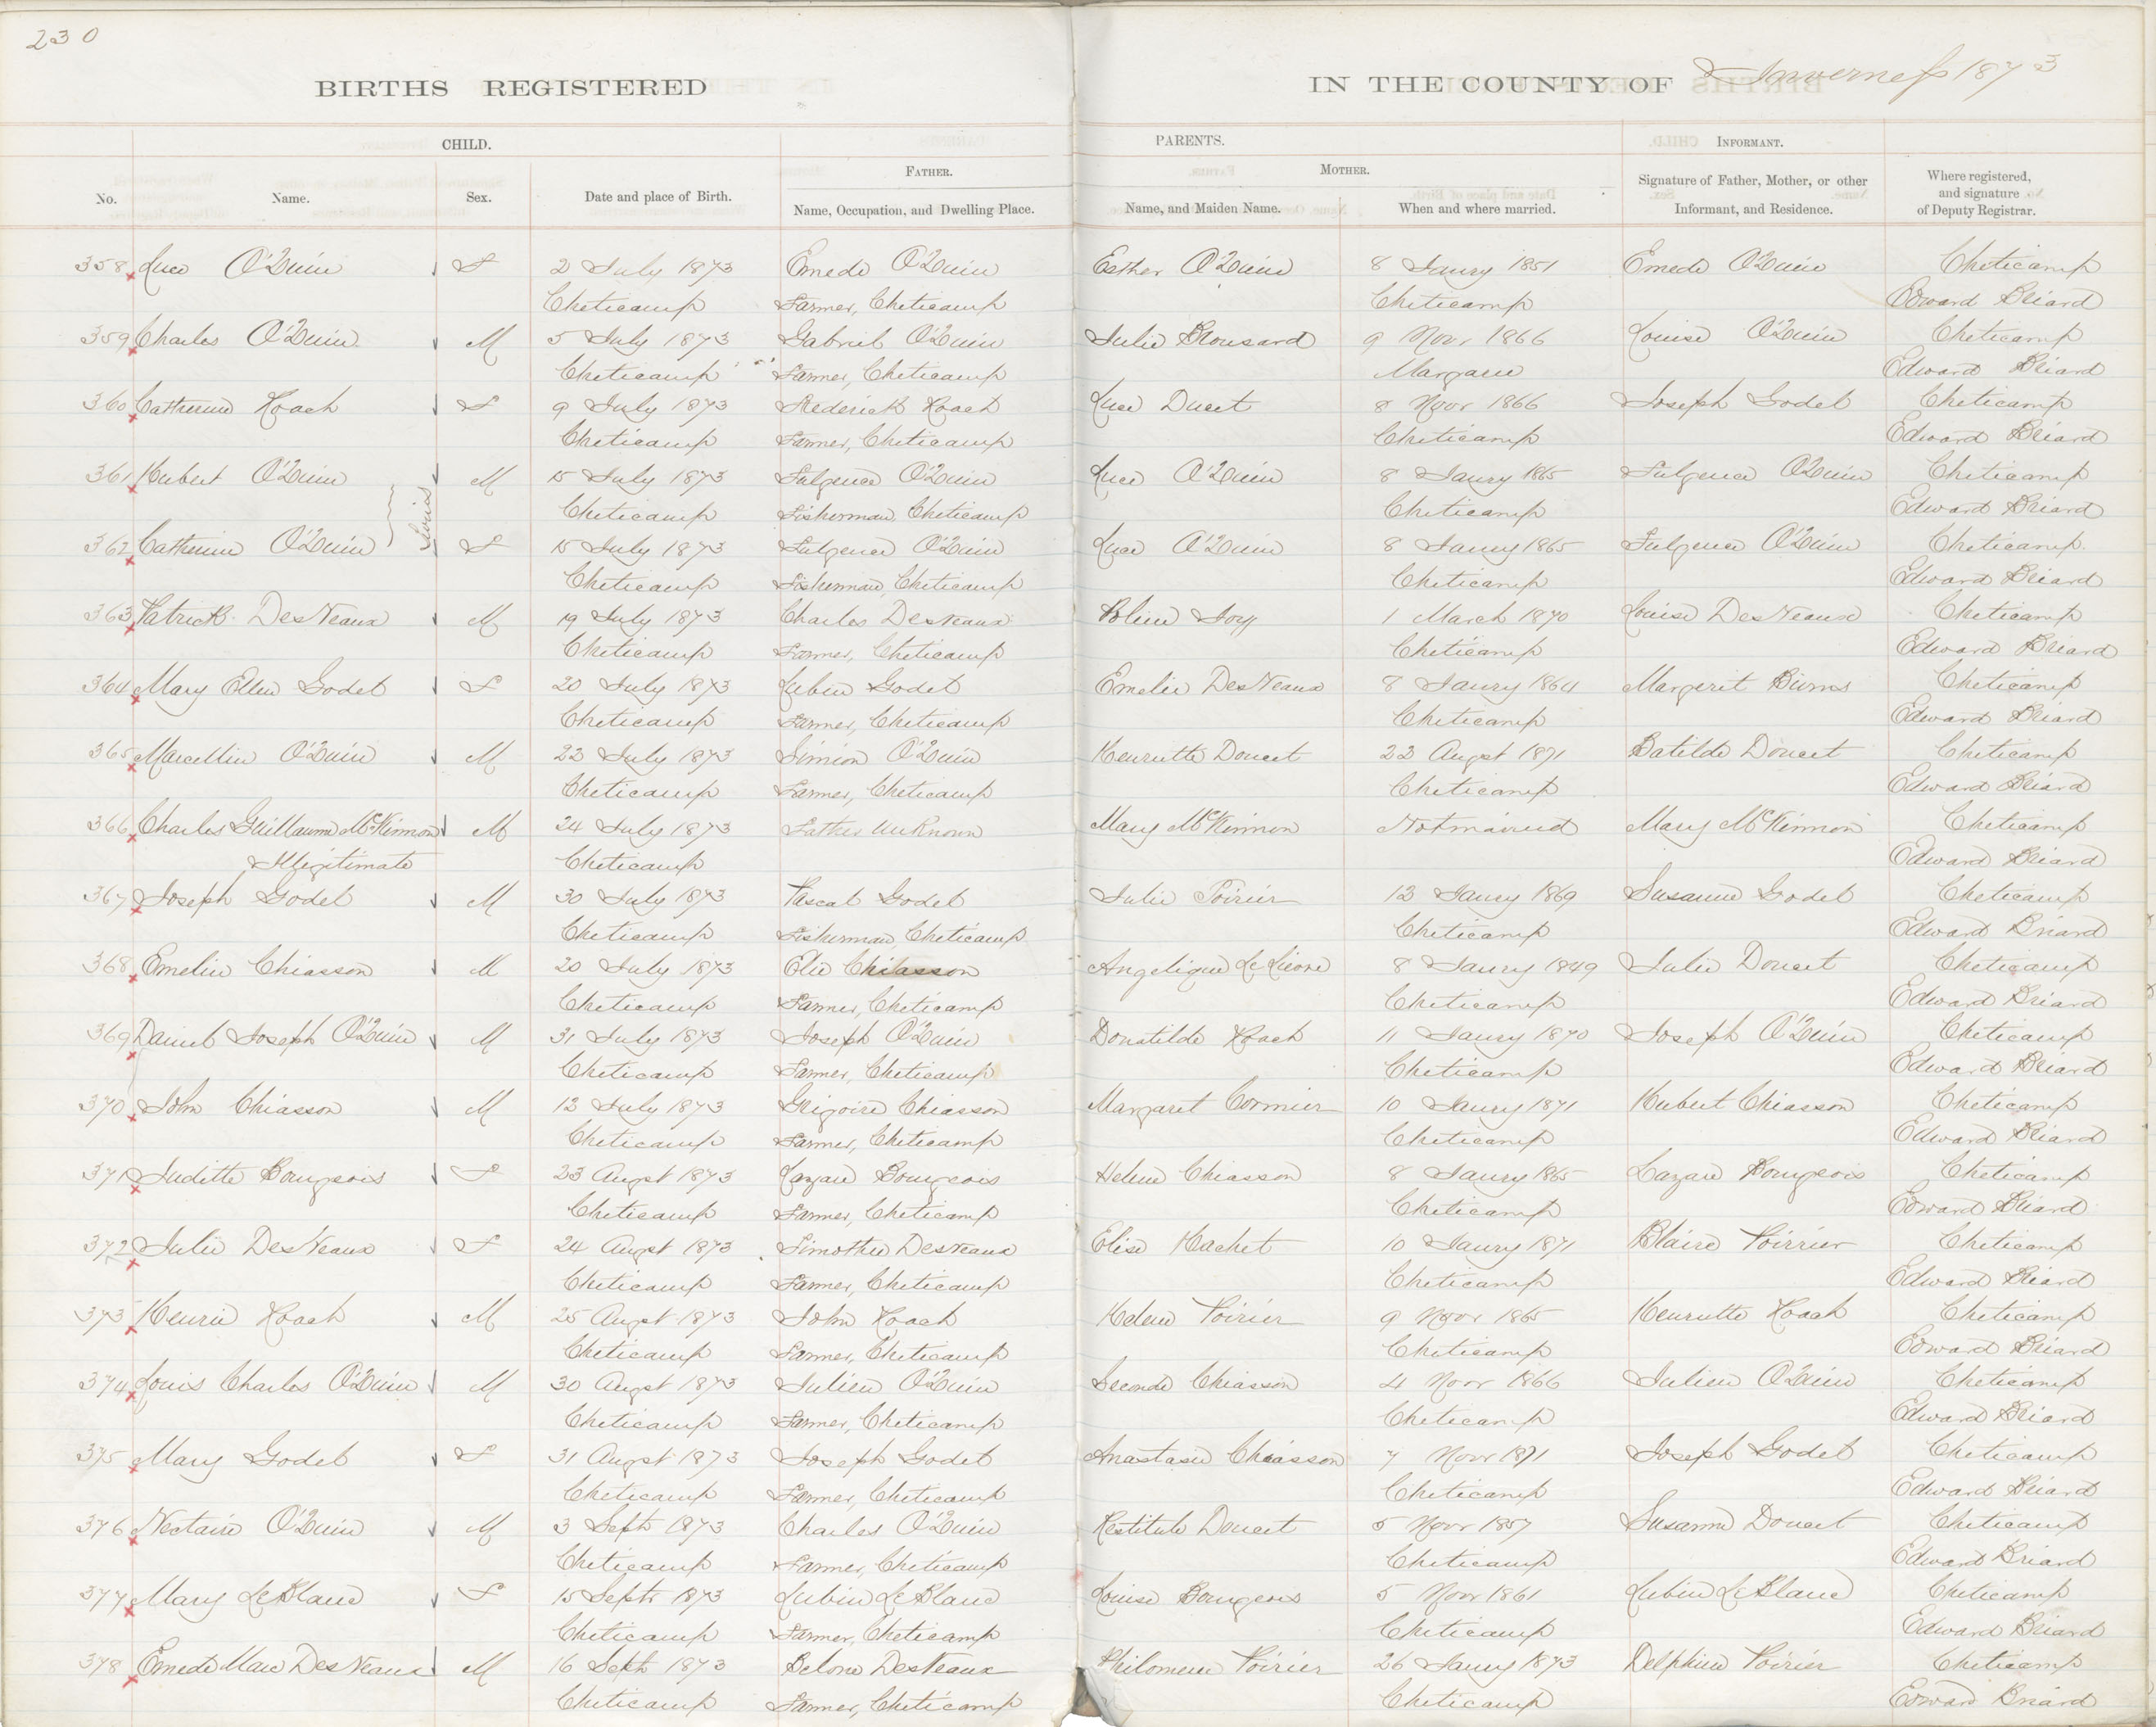 230
BIRTHS REGISTERED IN THE COUNTY OF Inverness 1873
CHILD. PARENTS. INFORMANT.
No. Name. Sex. Date and place of Birth. FATHER. Name, Occupation, and Dwelling Place. MOTHER. Name, and Maiden Name. When and where married. Signature of Father, Mother, or other Informant, and Residence. Where registered, and signature of Deputy Registrar.
358 Luce O'Quin F 2 July 1873 Emede O'Quin Esther O'Quin 8 Jaury 1851 Emede O'Quin Cheticamp
Cheticamp Farmer, Cheticamp Cheticamp Edward Briard
359 Charles O'Quin M 5 July 1873 Gabriel O'Quin Julie Brousard 9 Novr 1866 Louise O'Quin Cheticamp
Cheticamp Farmer, Cheticamp Margaree Edward Briard
360 Catherine Roach F 9 July 1873 Frederick Roach Luce Ducet 8 Novr 1866 Joseph Godet Cheticamp
Cheticamp Farmer, Cheticamp Cheticamp Edward Briard
361 Hubert O'Quin M 15 July 1873 Fulgence O'Quin Luce O'Quin 8 Jaury 1865 Fulgence O'Quin Cheticamp
Cheticamp Fisherman, Cheticamp Cheticamp Edward Briard
362 Catherine O'Quin F 15 July 1873 Fulgence O'Quin Luce O'Quin 8 Jaury 1865 Fulgence O'Quin Cheticamp
Cheticamp Fisherman, Cheticamp Cheticamp Edward Briard
363 Patrick DesVeaux M 19 July 1873 Charles DesVeaux Poline Joy 1 March 1870 Louise DesVeaux Cheticamp
Cheticamp Farmer, Cheticamp Cheticamp Edward Briard
364 Mary Ellen Godet F 20 July 1873 Lubin Godet Emelie DesVeaux 8 Jaury 1864 Margerit Burns Cheticamp
Cheticamp Farmer, Cheticamp Cheticamp Edward Briard
365 Marcellin O'Quin M 22 July 1873 Simion O'Quin Henriette Doucet 22 Augst 1871 Batilde Doucet Cheticamp
Cheticamp Farmer, Cheticamp Cheticamp Edward Briard
366 Charles Guillaume McKinnon M 24 July 1873 Father Unknown Mary McKinnon Not married Mary McKinnon Cheticamp
Illegitimate Cheticamp Edward Briard
367 Joseph Godet M 30 July 1873 Pascal Godet Julie Poirier 12 Jaury 1869 Susanne Godet Cheticamp
Cheticamp Fisherman, Cheticamp Cheticamp Edward Briard
368 Emelin Chiasson M 20 July 1873 Elie Chiasson Angelique LeLievre 8 Jaury 1849 Julie Doucet Cheticamp
Cheticamp Farmer, Cheticamp Cheticamp Edward Briard
369 Daniel Joseph O'Quin M 31 July 1873 Joseph O'Quin Donatilde Roach 11 Jaury 1870 Joseph O'Quin Cheticamp
Cheticamp Farmer, Cheticamp Cheticamp Edward Briard
370 John Chiasson M 12 July 1873 Grigoire Chiasson Margaret Cormier 10 Jaury 1871 Hubert Chiasson Cheticamp
Cheticamp Farmer, Cheticamp Cheticamp Edward Briard
371 Juditte Bourgeois F 23 Augst 1873 Lazare Bourgeois Helene Chiasson 8 Jaury 1865 Lazare Bourgeois Cheticamp
Cheticamp Farmer, Cheticamp Cheticamp Edward Briard
372 Julie DesVeaux F 24 Augst 1873 Timothee DesVeaux Elise Hachet 10 Jaury 1871 Blaise Poirrier Cheticamp
Cheticamp Farmer, Cheticamp Cheticamp Edward Briard
373 Henrie Roach M 25 Augst 1873 John Roach Helene Poirier 9 Novr 1865 Henriette Roach Cheticamp
Cheticamp Farmer, Cheticamp Cheticamp Edward Briard
374 Louis Charles O'Quin M 30 Augst 1873 Julien O'Quin Seconde Chiasson 4 Novr 1866 Julien O'Quin Cheticamp
Cheticamp Farmer, Cheticamp Cheticamp Edward Briard
375 Mary Godet F 31 Augst 1873 Joseph Godet Anastasie Chiasson 7 Novr 1871 Joseph Godet Cheticamp
Cheticamp Farmer, Cheticamp Cheticamp Edward Briard
376 Nectaire O'Quin M 3 Septr 1873 Charles O'Quin Restitule Doucet 5 Novr 1857 Susanne Doucet Cheticamp
Cheticamp Farmer, Cheticamp Cheticamp Edward Briard
377 Mary LeBlanc F 15 Septr 1873 Lubin LeBlanc Louise Bourgeois 5 Novr 1861 Lubin LeBlanc Cheticamp
Cheticamp Farmer, Cheticamp Cheticamp Edward Briard
378 Emede Marc DesVeaux M 16 Septr 1873 Belone DesVeaux Philomene Poirier 26 Jaury 1873 Delphine Poirier Cheticamp
Cheticamp Farmer, Cheticamp Cheticamp Edward Briard